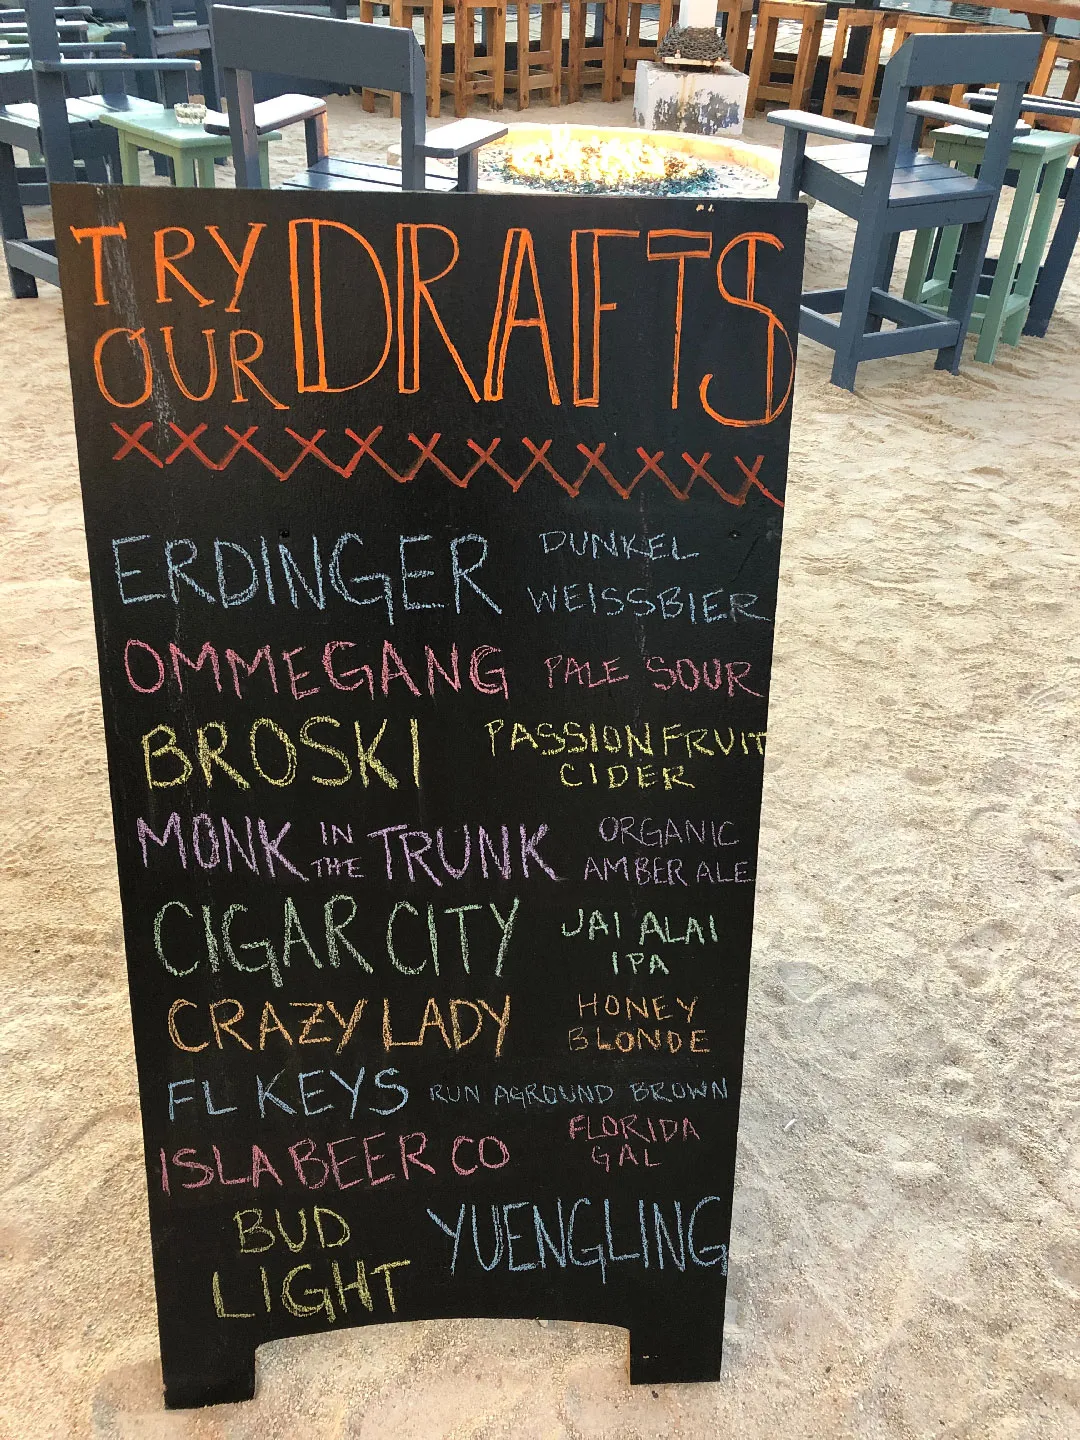 TRY OUR DRAFTS
XXXXXXXXXXXX
ERDINGER DUNKEL WEISSBIER
OMMEGANG PALE SOUR
BROSKI PASSIONFRUIT CIDER
MONK IN THE TRUNK ORGANIC AMBER ALE
CIGAR CITY JAI ALAI IPA
CRAZY LADY HONEY BLONDE
FL KEYS RUN AGROUND BROWN
ISLA BEER CO FLORIDA GAL
BUD LIGHT YUENGLING